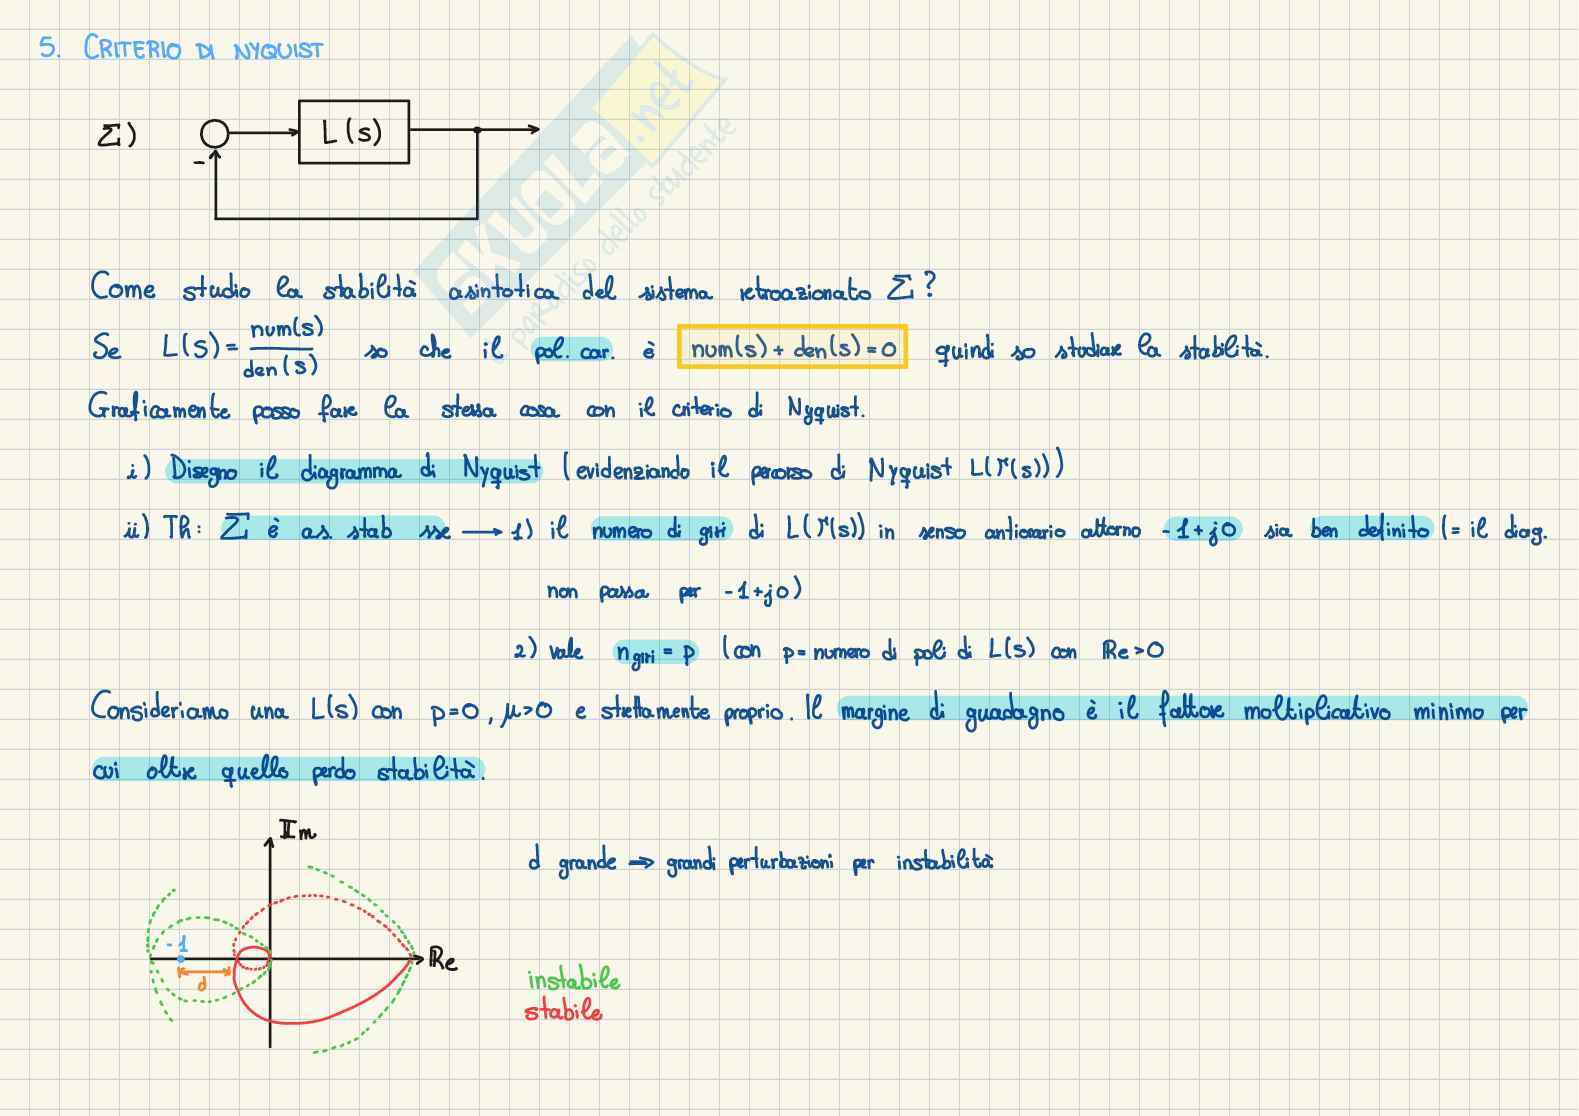 5. CRITERIO DI NYQUIST
Σ)
L(s)
-
SKUOLA.net
paradiso dello studente
Come studio la stabilità asintotica del sistema retroazionato Σ?
Se L(s) = num(s)/den(s) so che il pol. car. è num(s) + den(s) = 0 quindi so studiare la stabilità.
Graficamente posso fare la stessa cosa con il criterio di Nyquist.
i) Disegno il diagramma di Nyquist (evidenziando il percorso di Nyquist L(Γ(s)))
ii) Th: Σ è as. stab sse → 1) il numero di giri di L(Γ(s)) in senso antiorario attorno -1+j0 sia ben definito (= il diag.
non passa per -1+j0)
2) vale n giri = p (con p = numero di poli di L(s) con Re>0
Consideriamo una L(s) con p=0, μ>0 e strettamente proprio. Il margine di guadagno è il fattore moltiplicativo minimo per
cui oltre quello perdo stabilità.
Im
d grande → grandi perturbazioni per instabilità
-1
Re
d
instabile
stabile